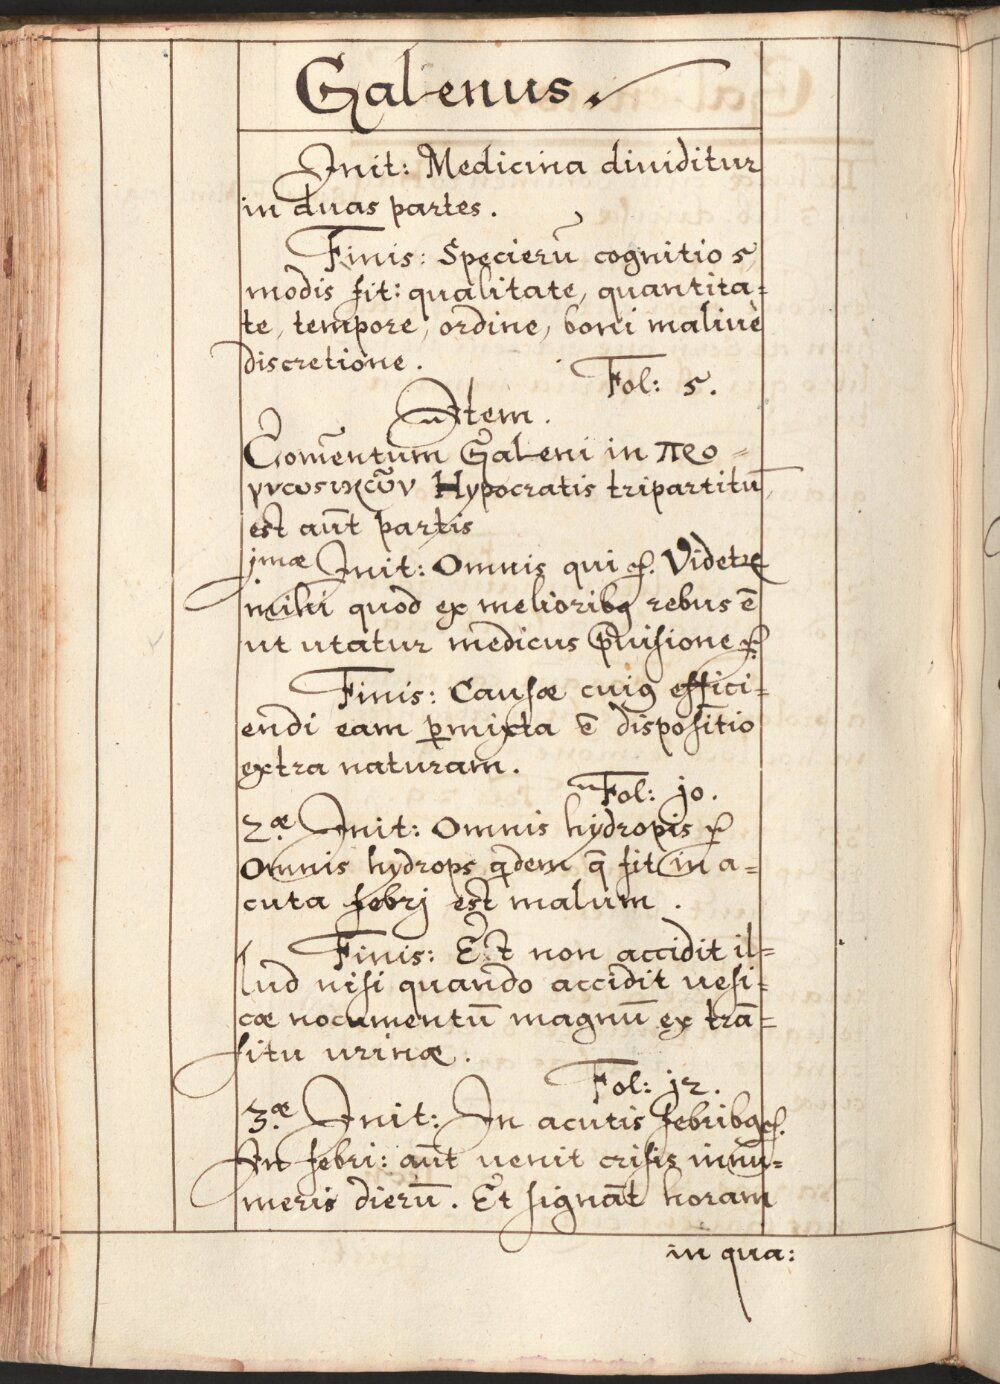 Galenus.
Init: Medicina diuiditur
in duas partes.
Finis: Specierū cognitio 5
modis fit: qualitate, quantita=
te, tempore, ordine, boni maliuè
discretione.
Fol: 5.
Item.
Com̄entum Galeni in προ=
γνωστικῶν Hypocratis tripartitū,
est aūt partis
jmæ Init: Omnis qui &. Videtꝛ
mihi quod ex melioribꝯ rebus ē
ut utatur medicus p̄uisione &
Finis: Causæ cuiꝯ effici=
endi eam ꝑmixta ē dispositio
extra naturam.
Fol: jo.
2.æ Init: Omnis hydropis &
Omnis hydrops q̄dem q̄ fit in a=
cuta febrj est malum.
Finis: Et non accidit il=
lud nisi quando accidit uesi=
cæ nocumentū magnū ex trā=
situ urinæ.
Fol: j2.
3.æ Init: In acutis febribꝯ &.
In febri: aūt uenit crisis in nu=
meris dierū. Et signāt horam
in qua: